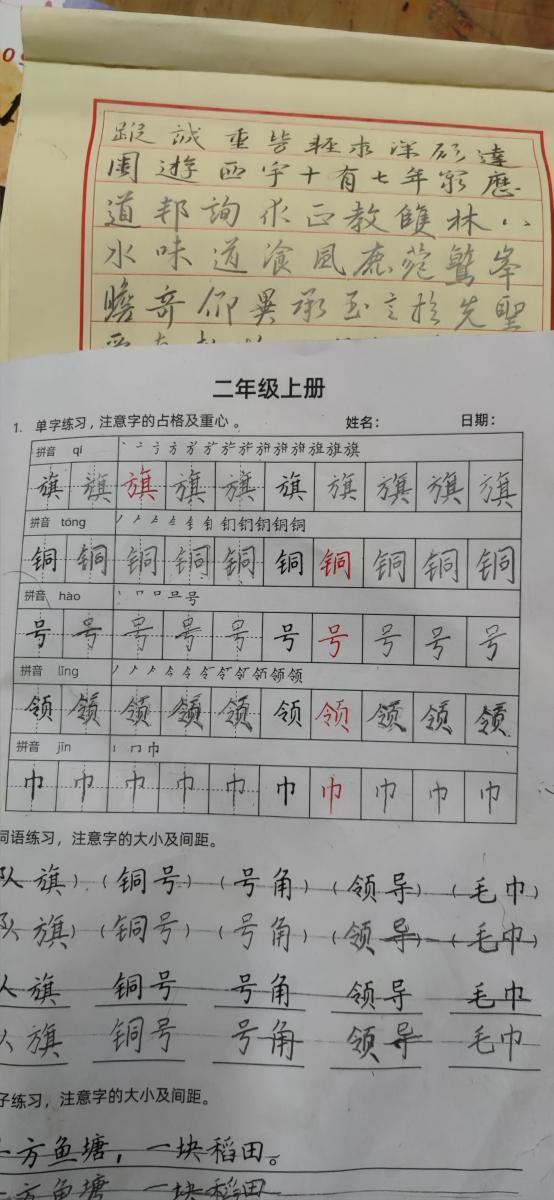 蹤誠重皆輕求深願達
周遊西宇十有七年窮歷
道邦詢求正教雙林八
水味道飡風鹿菀鷲峯
瞻奇仰異承至言於先聖
二年级上册
1. 单字练习，注意字的占格及重心。 姓名： 日期：
拼音 qí
旗 旗 旗 旗 旗 旗 旗 旗 旗 旗
拼音 tóng
铜 铜 铜 铜 铜 铜 铜 铜 铜 铜
拼音 hào
号 号 号 号 号 号 号 号 号 号
拼音 lǐng
领 领 领 领 领 领 领 领 领 领
拼音 jīn
巾 巾 巾 巾 巾 巾 巾 巾 巾 巾
词语练习，注意字的大小及间距。
队旗）（铜号）（号角）（领导）（毛巾）
队旗）（铜号）（号角）（领导）（毛巾）
队旗 铜号 号角 领导 毛巾
队旗 铜号 号角 领导 毛巾
子练习，注意字的大小及间距。
方鱼塘，一块稻田。
方鱼塘 一块稻田